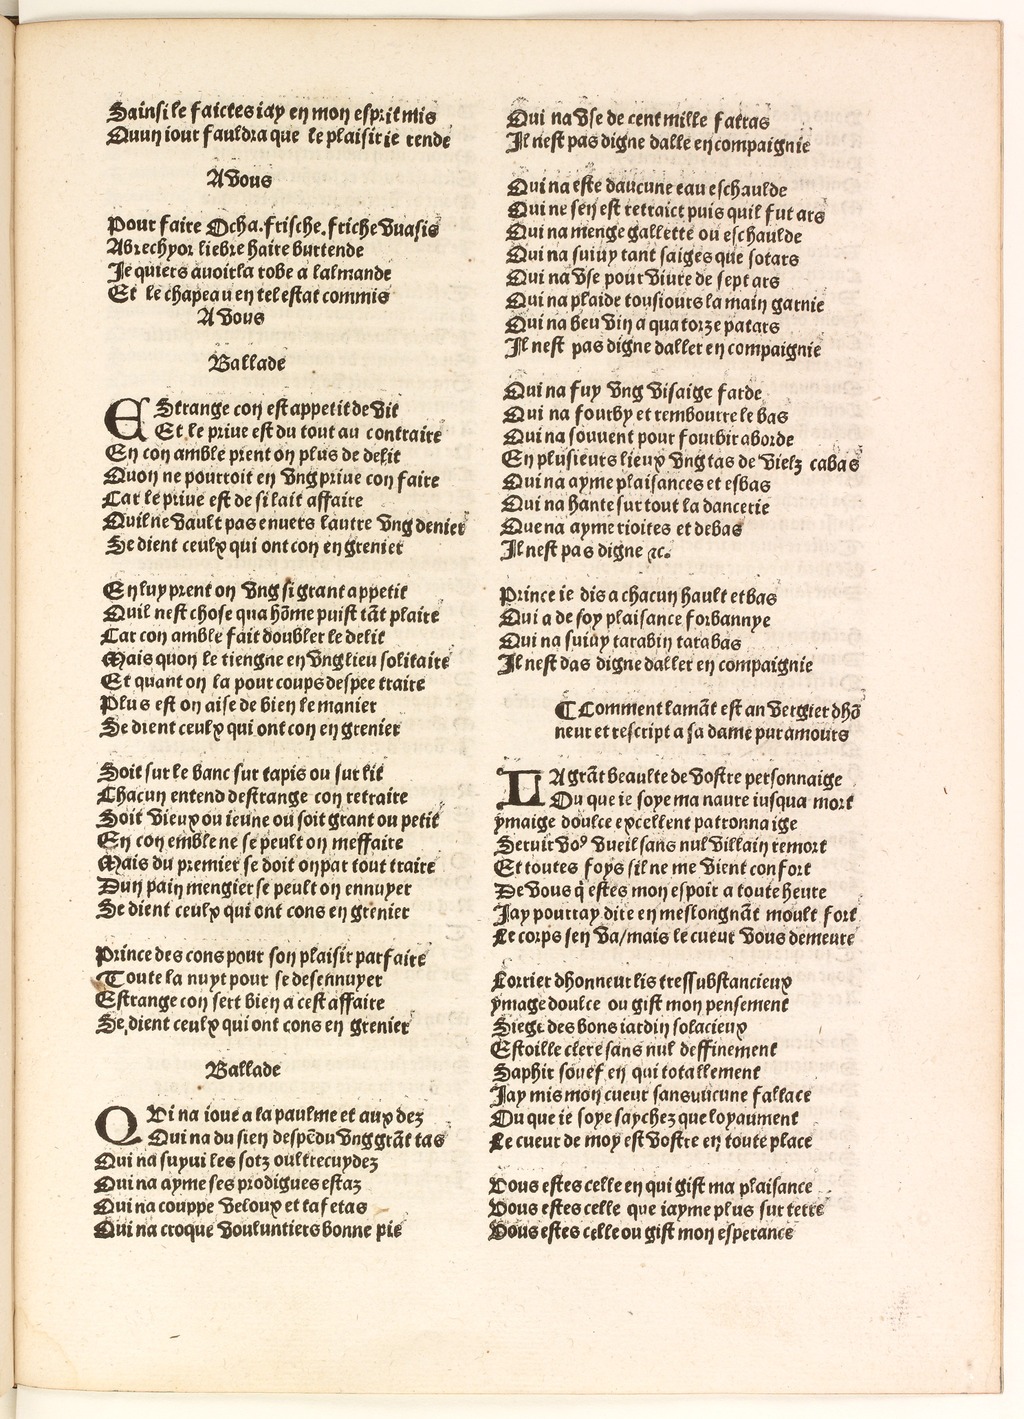 Sainsi le faictes iay en mon esprit mis
Quun iour fauldra que le plaisir ie rende
A vous
Pour faire Ocha.frische.friche vuasis
Abrechyor liebre haire burtende
Je quiers auoir la robe a lalmande
Et le chapeau en tel estat commis
A vous
Ballade
EStrange con est appetit de vit
Et le priue est du tout au contraire
En con amble prent on plus de delit
Quon ne pourroit en vng priue con faire
Car le priue est de si lait affaire
Quil ne vault pas enuers lautre vng denier
Se dient ceulx qui ont con en grenier
En luy prent on vng si grant appetit
Quil nest chose qua hõme puist tãt plaire
Car con amble fait doubler le delit
Mais quon le tiengne en vng lieu solitaire
Et quant on la pour coups despee traire
Plus est on aise de bien le manier
Se dient ceulx qui ont con en grenier
Soit sur le banc sur tapis ou sur lit
Chacun entend destrange con retraire
Soit vieux ou ieune ou soit grant ou petit
En con emble ne se peult on meffaire
Mais du premier se doit on par tout traire
Dun pain mengier se peult on ennuyer
Se dient ceulx qui ont cons en grenier
Prince des cons pour son plaisir parfaire
Toute la nuyt pour se desennuyer
Estrange con sert bien a cest affaire
Se dient ceulx qui ont cons en grenier
Ballade
QVi na ioue a la paulme et aux dez
Qui na du sien despẽdu vng grãt tas
Qui na suyui les sotz oultrecuydez
Qui na ayme ses prodigues estaz
Qui na couppe veloux et tafetas
Qui na croque vouluntiers bonne pie
Qui na vse de cent mille fatras
Il nest pas digne dalle en compaignie
Qui na este daucune eau eschaulde
Qui ne sen est retraict puis quil fut ars
Qui na menge gallette ou eschaulde
Qui na suiuy tant saiges que sotars
Qui na vse pour viure de sept ars
Qui na plaide tousiours la main garnie
Qui na beu vin a quatorze patars
Il nest pas digne daller en compaignie
Qui na fuy vng visaige farde
Qui na fourby et rembourre le bas
Qui na souuent pour fourbir aborde
En plusieurs lieux vng tas de vielz cabas
Qui na ayme plaisances et esbas
Qui na hante sur tout la dancerie
Que na ayme rioites et debas
Il nest pas digne ⁊c.
Prince ie dis a chacun hault et bas
Qui a de soy plaisance forbannye
Qui na suiuy tarabin tarabas
Il nest das digne daller en compaignie
¶ Comment lamãt est an vergier dhõ
neur et rescript a sa dame par amours
LA grãt beaulte de vostre personnaige
Ou que ie soye ma naure iusqua mort
ymaige doulce excellent patronnaige
Seruir voꝰ vueil sans nul villain remort
Et toutes foys sil ne me vient confort
De vous q̃ estes mon espoir a toute heure
Jay pourray dire en meslongnãt moult fort
Le corps sen va/mais le cueur vous demeure
Lorrier dhonneur lis tressubstancieux
ymage doulce ou gist mon pensement
Siege des bons iardin solacieux
Estoille clere sans nul deffinement
Saphir souef en qui totallement
Jay mis mon cueur sans aucune fallace
Ou que ie soye saychez que loyaument
Le cueur de moy est vostre en toute place
Vous estes celle en qui gist ma plaisance
Vous estes celle que iayme plus sur terre
Vous estes celle ou gist mon esperance